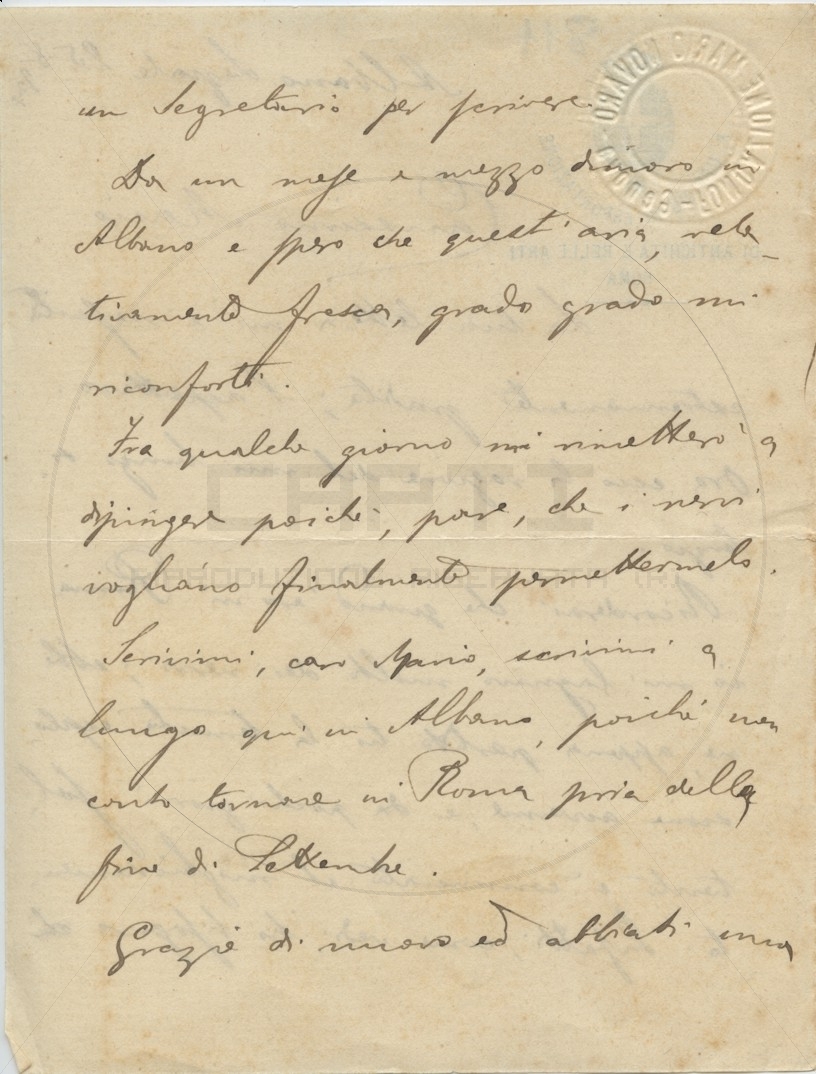 un Segretario per scrivere.
Da un mese e mezzo dimoro in
Albano e spero che quest'aria, rela-
tivamente fresca, grado grado mi
riconforti.
Fra qualche giorno mi rimetterò a
dipingere poiché, pare, che i nervi
vogliano finalmente permettermelo.
Scrivimi, caro Mario, scrivimi a
lungo qui in Albano, poiché non
conto tornare in Roma pria della
fine di Settembre.
Grazie di nuovo ed abbiati una